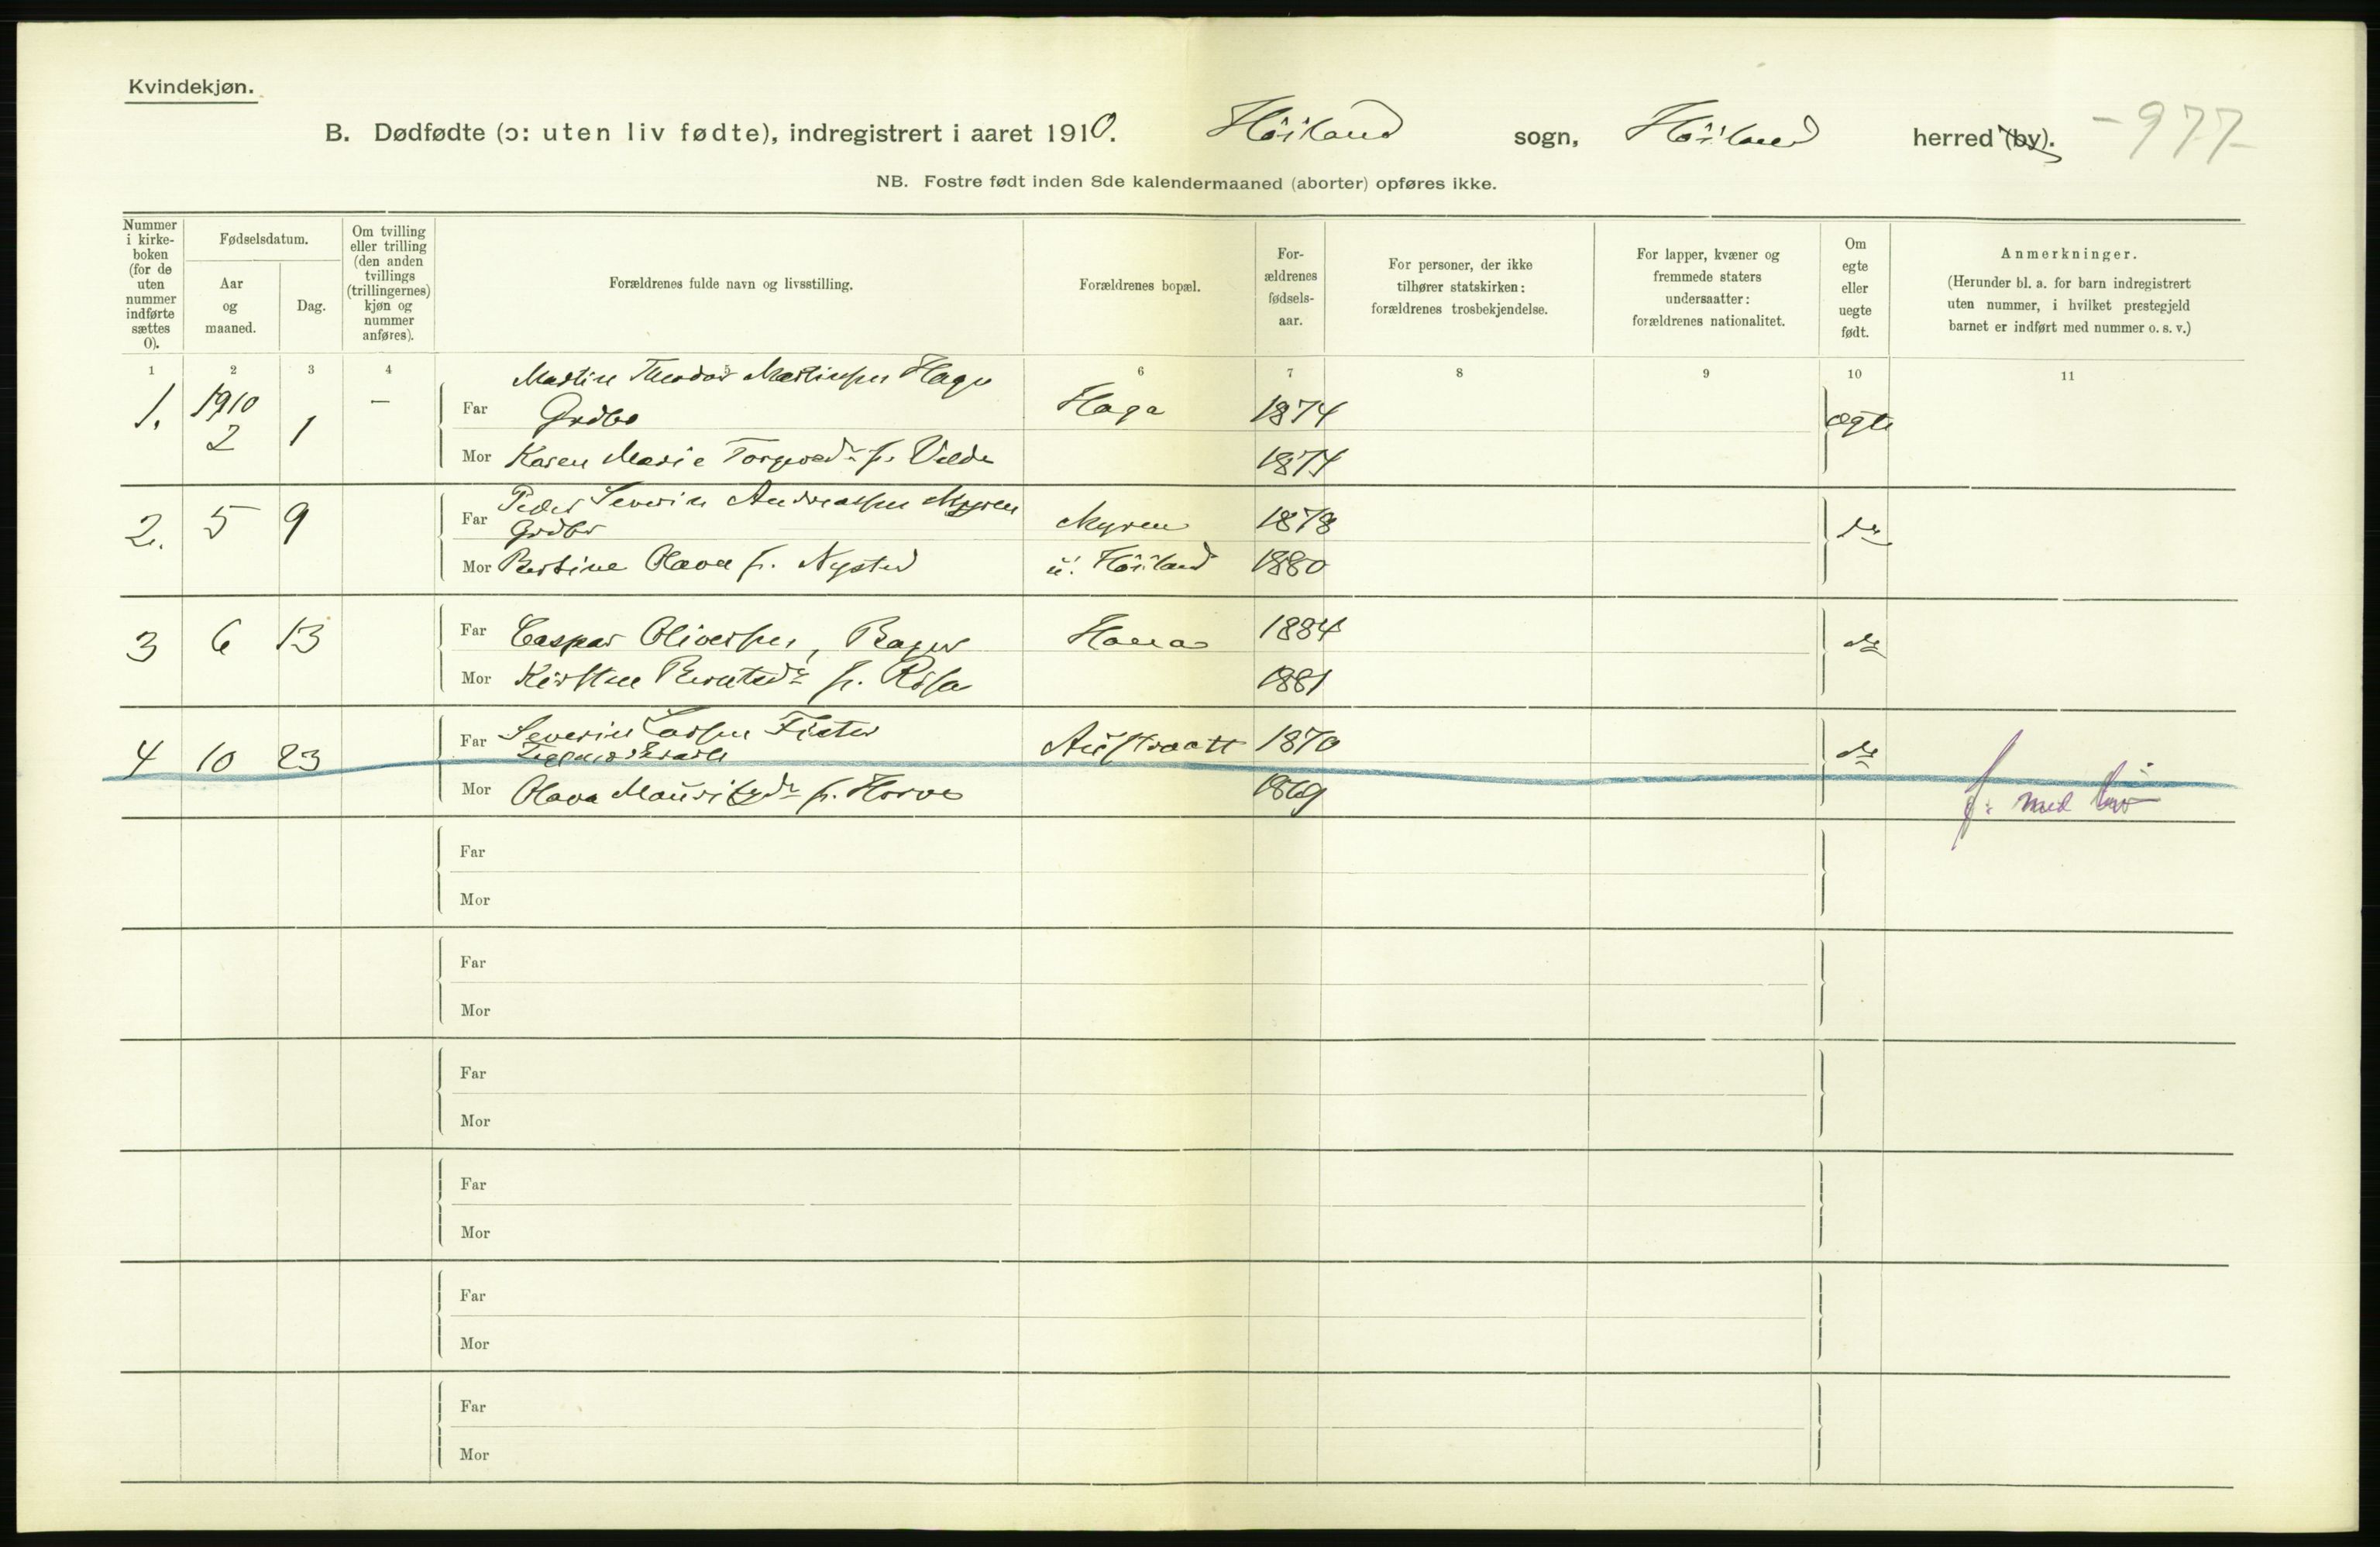 Kvindekjøn.
B. Dødfødte (ɔ: uten liv fødte), indregistrert i aaret 1910. Höiland sogn, Höiland herred (by). -977-
NB. Fostre født inden 8de kalendermaaned (aborter) opføres ikke.
Nummer i kirke-boken (for de uten nummer indførte sættes 0).
Fødselsdatum.
Aar og maaned.
Dag.
Om tvilling eller trilling (den anden tvillings (trillingernes) kjøn og nummer anføres).
Forældrenes fulde navn og livsstilling.
Forældrenes bopæl.
For-ældrenes fødsels-aar.
For personer, der ikke tilhører statskirken: forældrenes trosbekjendelse.
For lapper, kvæner og fremmede staters undersaatter: forældrenes nationalitet.
Om egte eller uegte født.
Anmerkninger.
(Herunder bl. a. for barn indregistrert uten nummer, i hvilket prestegjeld barnet er indført med nummer o. s. v.)
1 2 3 4 5 6 7 8 9 10 11
Martin Theodor Martinsen Haga
1. 1910 2 1 — Far Grdbr Haga 1874 ægte
Mor Karen Marie f. 1874
Peder Severin Andreassen Myren
2. 5 9 Far Grdbr Myren 1878 do
Mor Bertine Olava f. Nysted u. Höiland 1880
3 6 13 Far Caspar Oliversen, Bager Hana 1884 do
Mor Kirsten Berntsdr f. 1881
Severin Larsen Fister
4 10 23 Far Austraatt 1870 do
Mor Olava Mauritzdr f. 1869 f: med liv
Far
Mor
Far
Mor
Far
Mor
Far
Mor
Far
Mor
Far
Mor